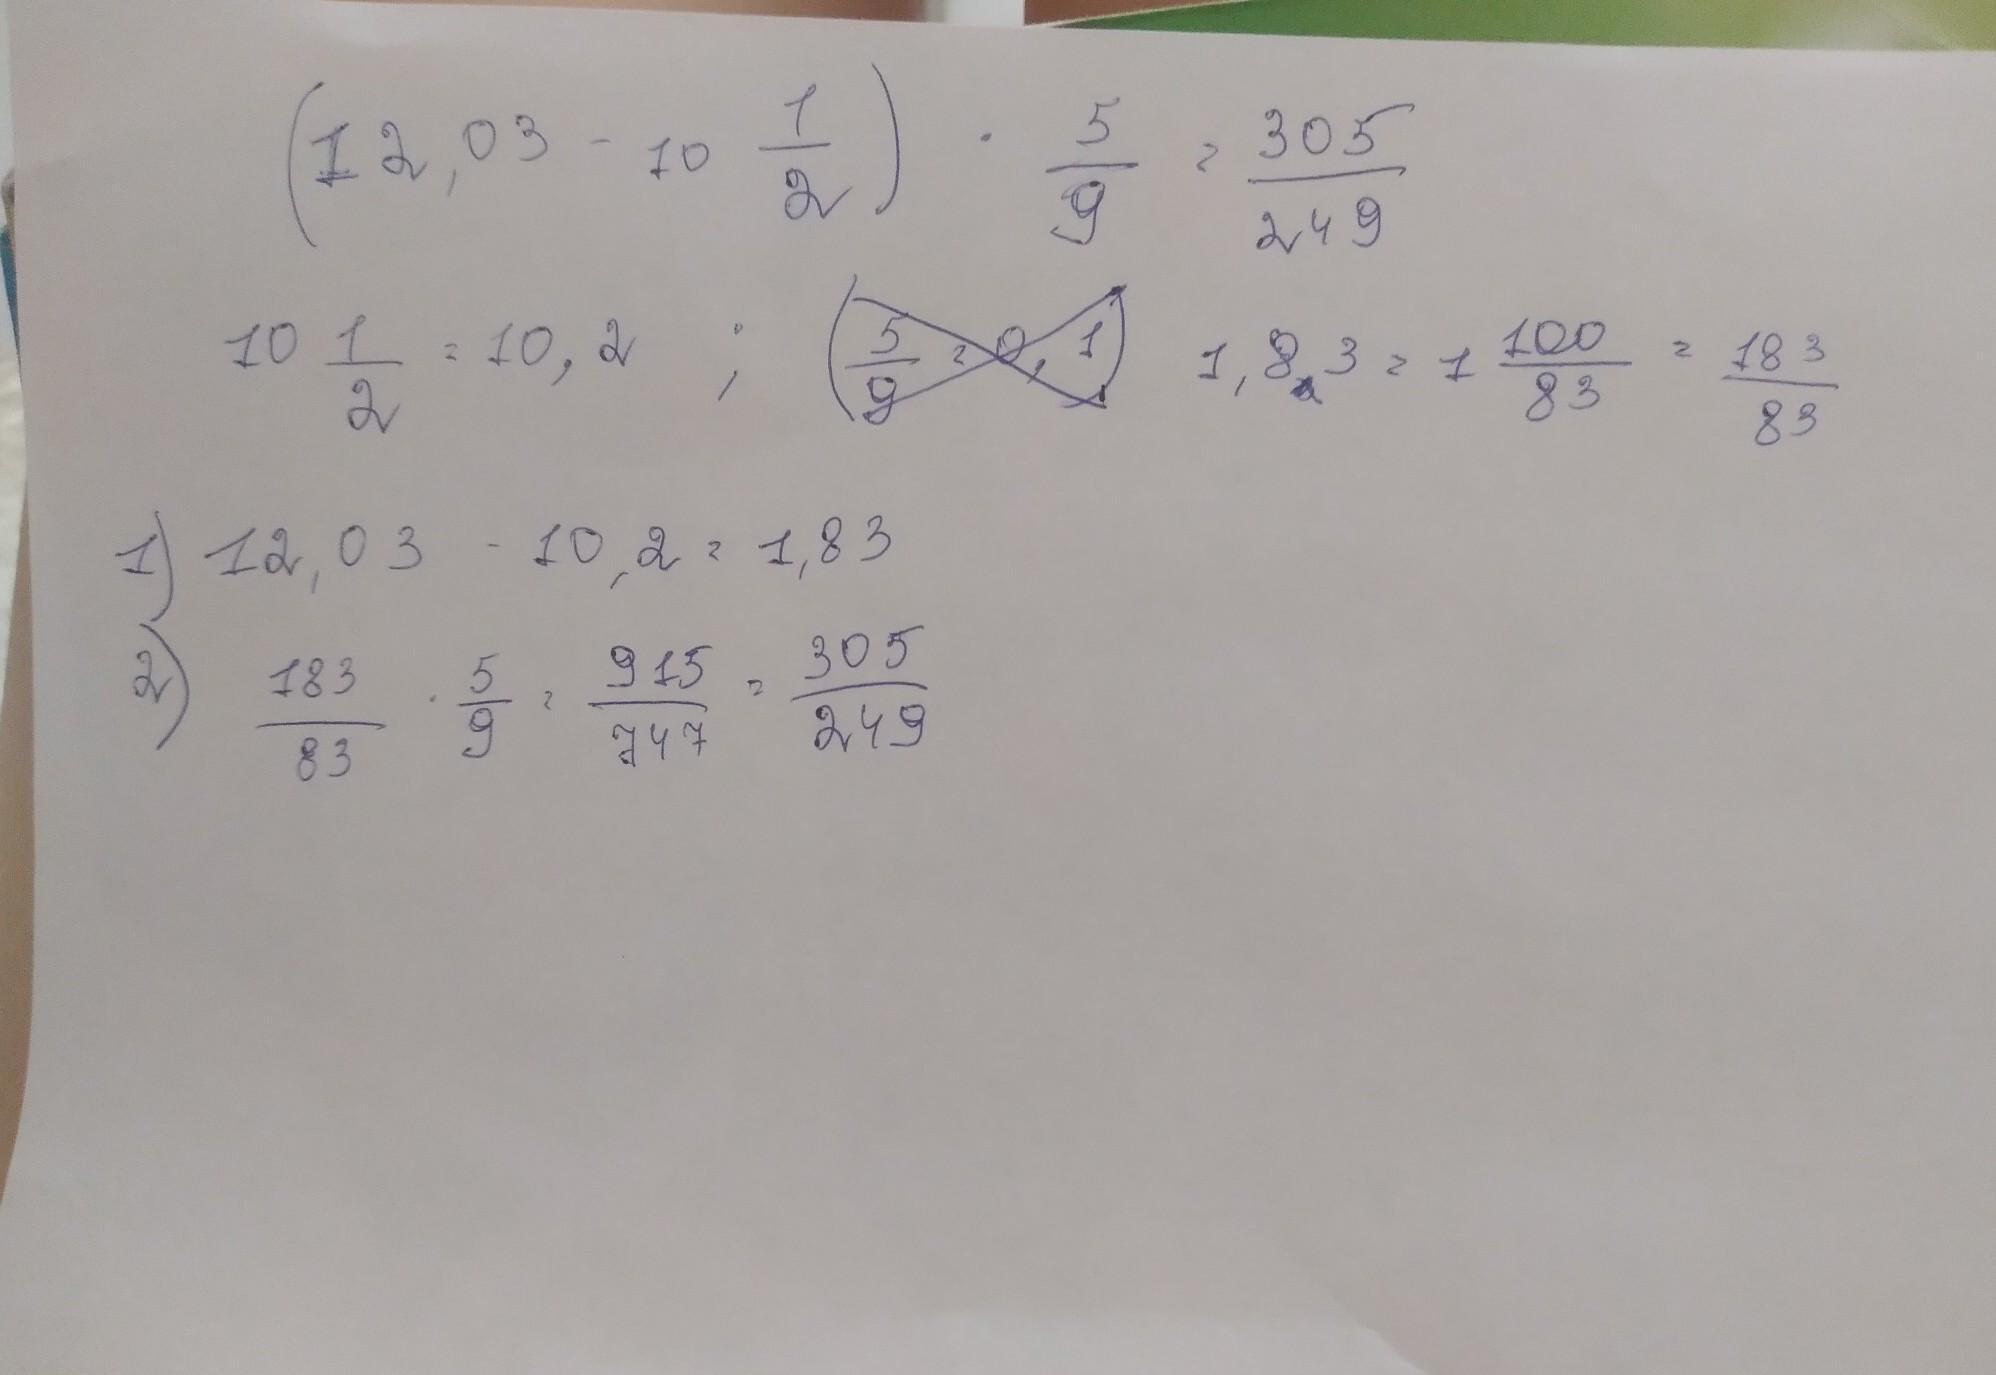 (12,03 - 10 1/2) · 5/9 = 305/249
10 1/2 = 10,2 ; (5/9 = 0,1) 1,83 = 1 100/83 = 183/83
1) 12,03 - 10,2 = 1,83
2) 183/83 · 5/9 = 915/747 = 305/249